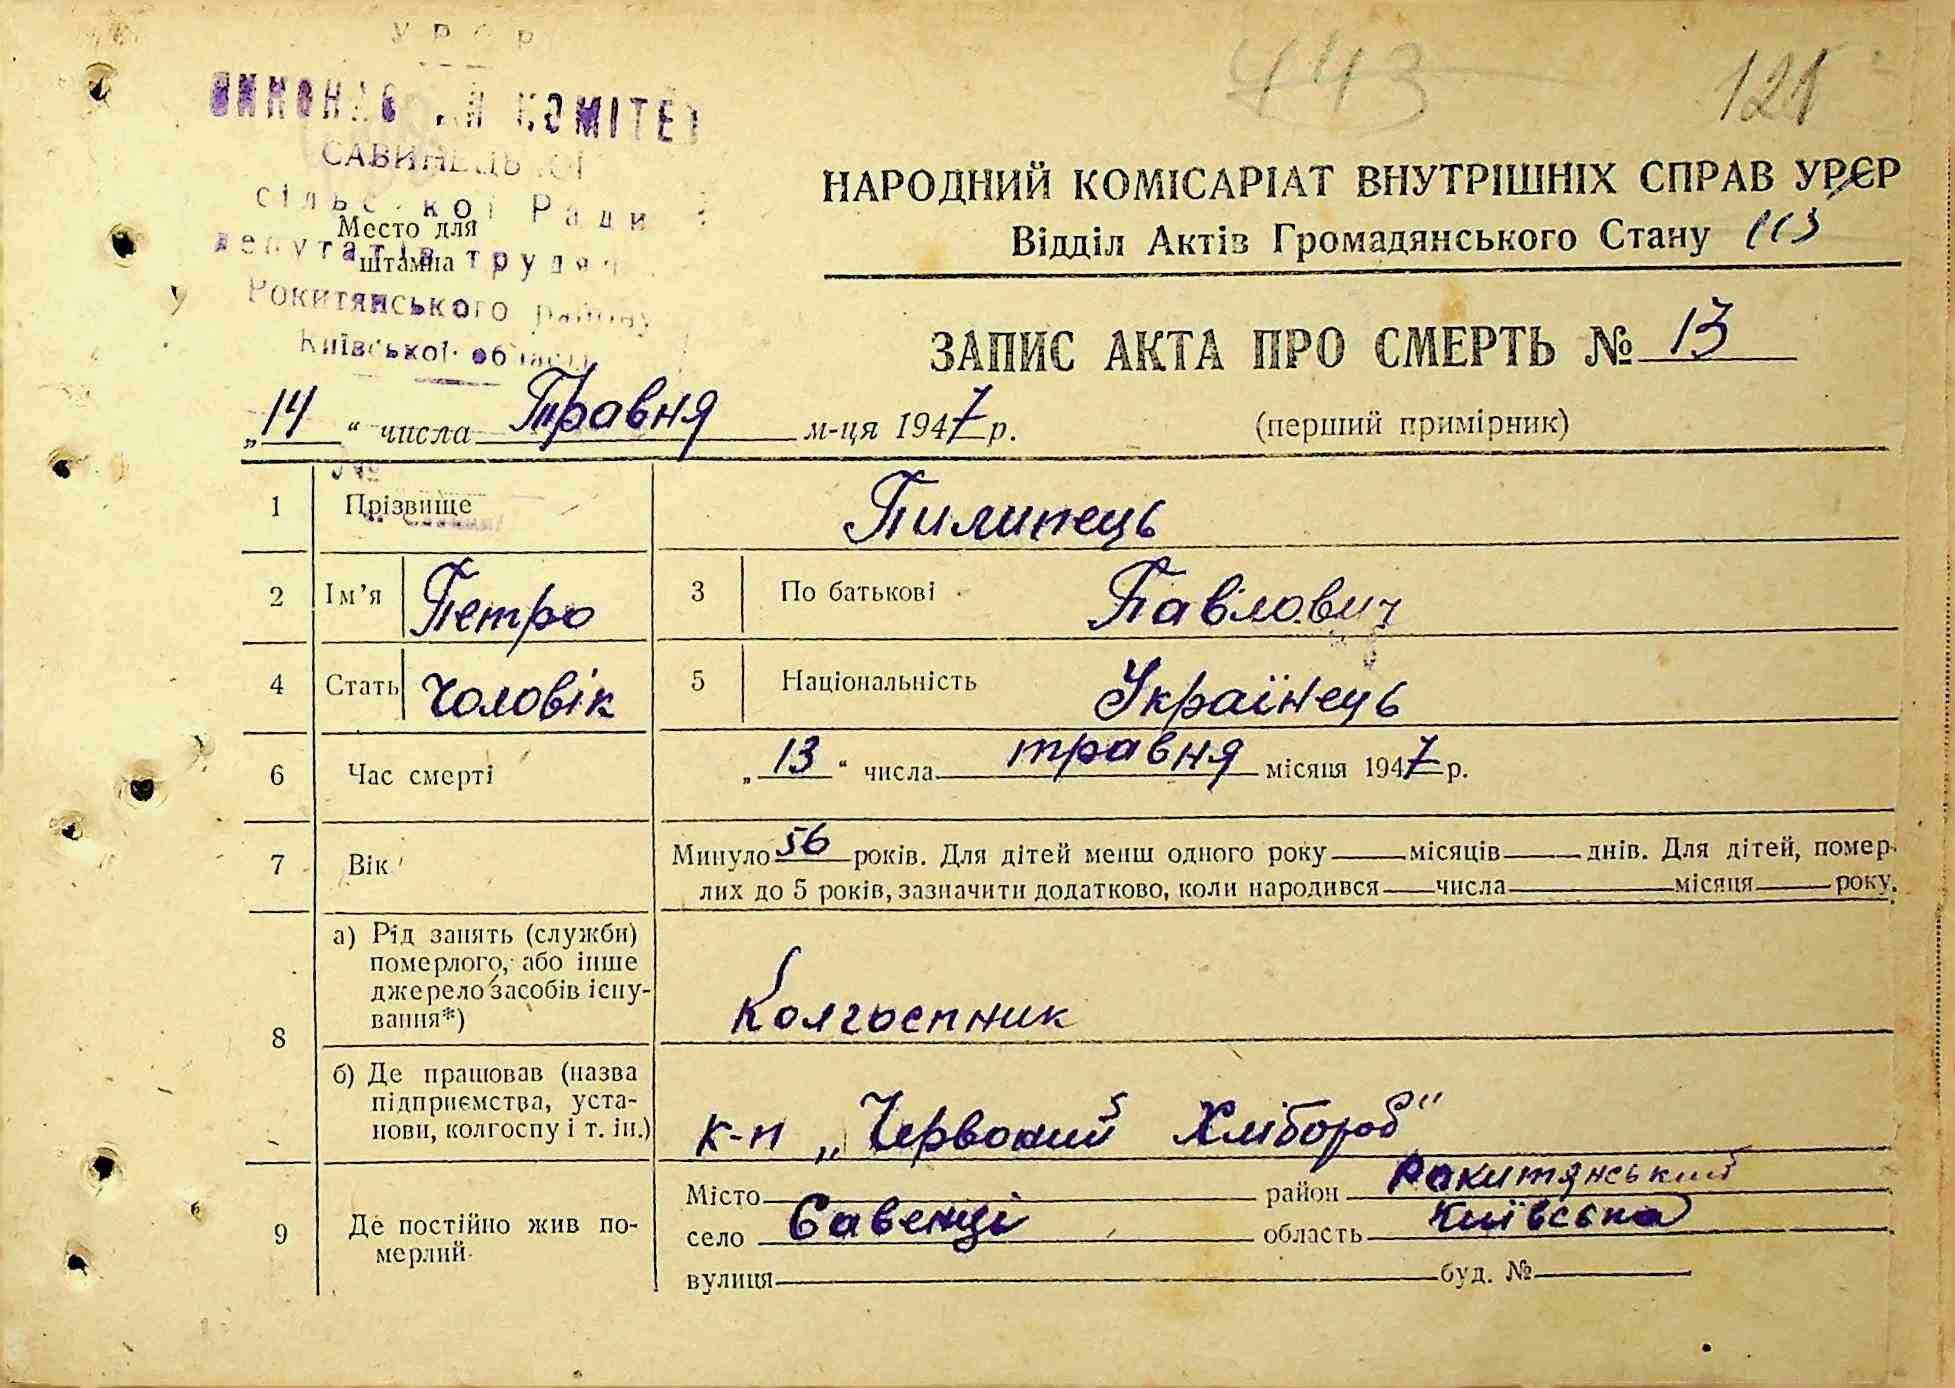 УРСР
ВИКОНАВЧИЙ КОМІТЕТ
САВИНЕЦЬКОЇ
сільської Ради
депутатів трудящ
Рокитянського району
Київської області
Место для
штампа
443
121
НАРОДНИЙ КОМІСАРІАТ ВНУТРІШНІХ СПРАВ УРСР
Відділ Актів Громадянського Стану 113
ЗАПИС АКТА ПРО СМЕРТЬ № 13
„14“ числа Травня м-ця 1947 р. (перший примірник)
1 Прізвище Пилипець
2 Ім’я Петро 3 По батькові Павлович
4 Стать Чоловік 5 Національність Українець
6 Час смерті „13“ числа травня місяця 1947 р.
7 Вік Минуло 56 років. Для дітей менш одного року місяців днів. Для дітей, помер-
лих до 5 років, зазначити додатково, коли народився числа місяця року.
8 а) Рід занять (служби)
померлого, або інше
джерело засобів існу-
вання*)
Колгоспник
б) Де працював (назва
підприємства, уста-
нови, колгоспу і т. ін.)
к-п „Червоний Хлібороб“
9 Де постійно жив по-
мерлий
Місто район Ракитянський
село Савенці область Київська
вулиця буд. №